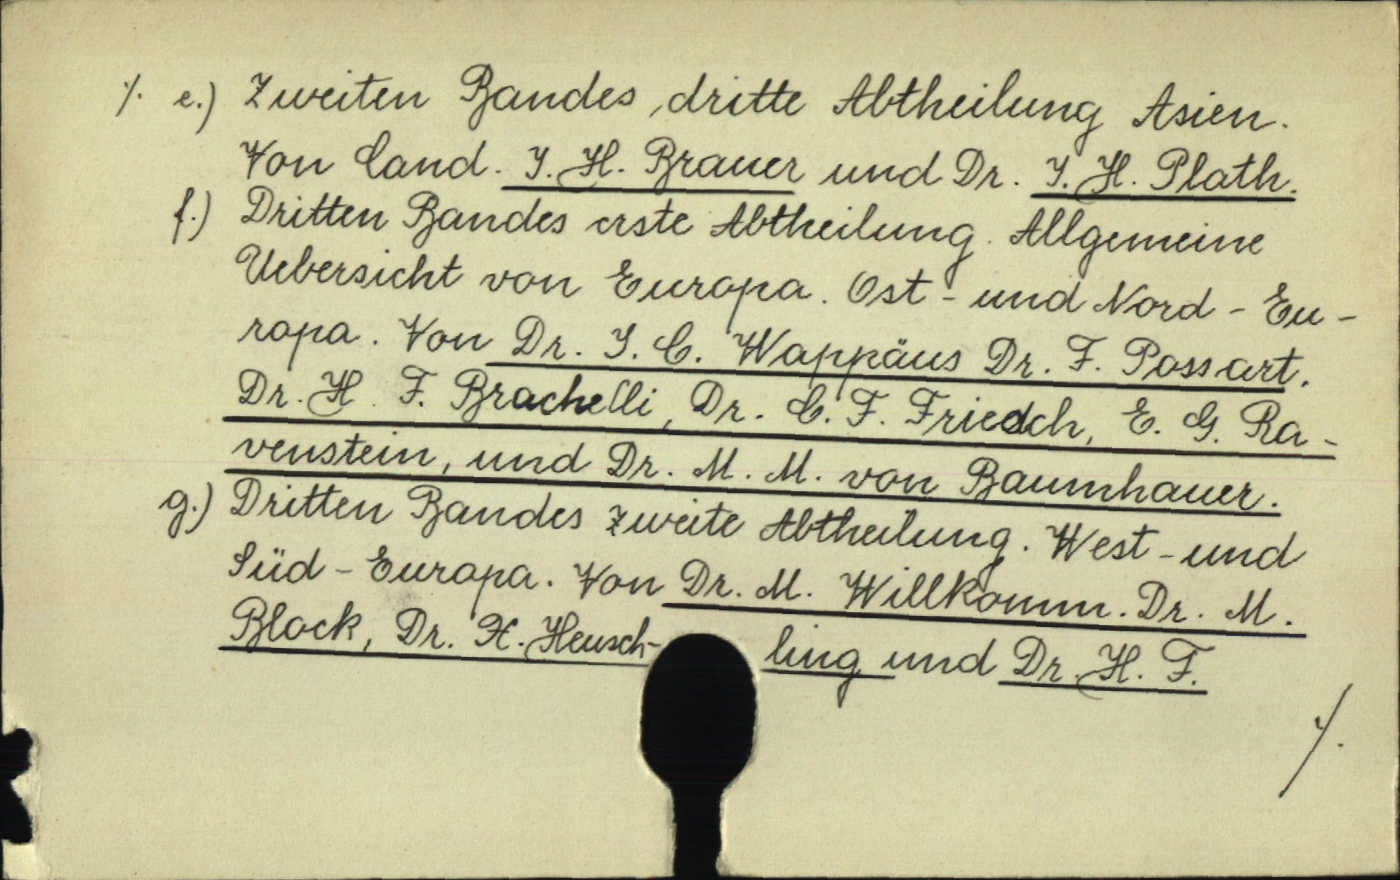 ./. e.) Zweiten Bandes, dritte Abtheilung Asien.
Von Cand. J. H. Brauer und Dr. J. H. Plath.
f.) Dritten Bandes erste Abtheilung. Allgemeine
Uebersicht von Europa. Ost- und Nord-Eu-
ropa. Von Dr. J. C. Wappäus Dr. F. Possart.
Dr. H. F. Brachelli, Dr. C. F. Friesch, E. G. Ra-
venstein, und Dr. M. M. von Baumhauer.
g.) Dritten Bandes zweite Abtheilung. West- und
Süd-Europa. Von Dr. M. Willkomm. Dr. M.
Block, Dr. X. Heusch- ling und Dr. H. F.
./.